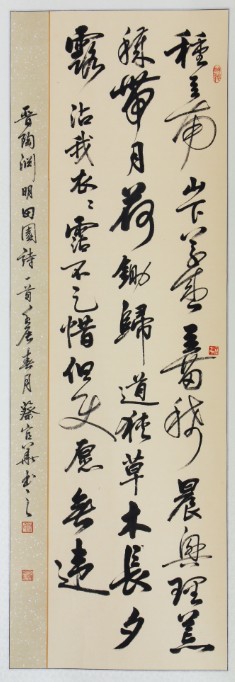 種豆南山下草盛豆苗稀晨興理荒
穢帶月荷鋤歸道狹草木長夕
露沾我衣〻霑不足惜但使愿無違
晋陶淵明田園詩一首 春月蔡官華書之